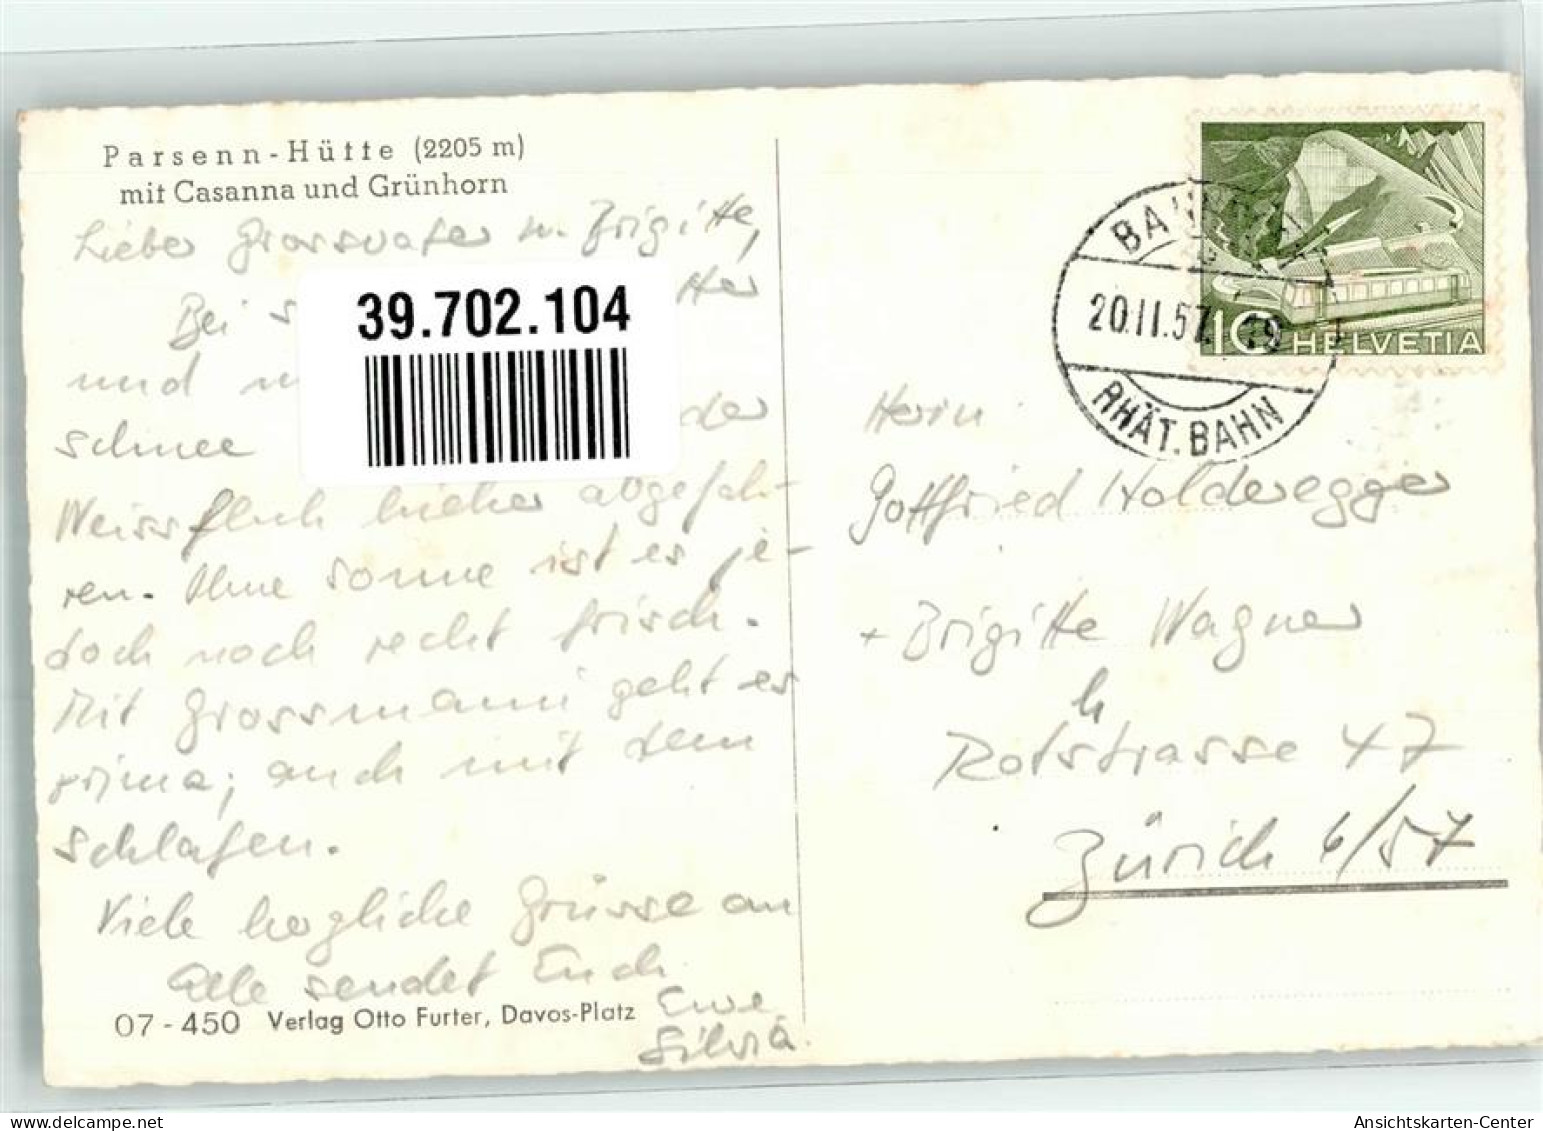 Parsenn-Hütte (2205 m)
mit Casanna und Grünhorn
Lieber Grossvater u. Brigitte,
Bei
und
schnee der
Weissfluh hieher abgefah-
ren. Ohne Sonne ist es je-
doch noch recht frisch.
Mit Grossmami geht es
prima; auch mit dem
schlafen.
Viele herzliche Grüsse an
alle sendet Euch
Eure
Silvia.
07 - 450 Verlag Otto Furter, Davos-Platz
39.702.104
20.II.57. 19
RHÄT. BAHN
10 HELVETIA
Herrn
Gottfried Holderegger
+ Brigitte Wagner
Rotstrasse 47
Zürich 6/57
Ansichtskarten-Center